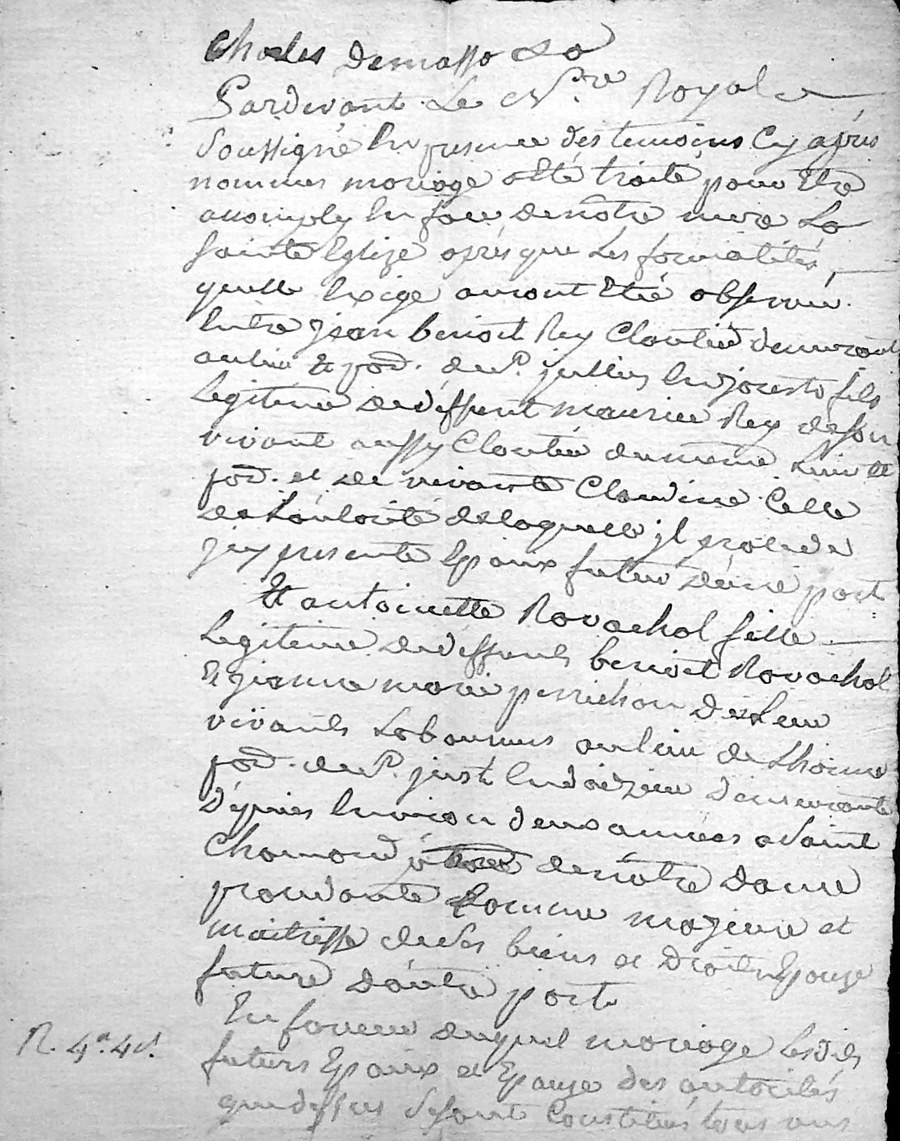 Charles Demasso &a
Pardevant Le N.re Royal
Soussigné En presence des temoins Cy après
nommes mariage a Eté traité pour Etre
accomply En face de notre mere La
Sainte Eglize après que Les formalités
quelle Exige auront Eté observée
Entre jean benoit Rey Cloutier demeurant
au lieu & par. de S.t jullien En jarest fils
Legitime de deffunt maurice Rey de son
vivant aussy Cloutier du meme Lieu &
par. et de vivante Claudine Celle
de L'autorité de laquelle jl procede
jcy presente Epoux futur d'une part
& antoinette Ravachol fille
Legitime de deffunts benoit Ravachol
Et jeanne marie perrichon de Leur
vivants Laboureurs au lieu de Lhorme
par. de S.t just En doizieu demeurante
Depuis Environ deux années a Saint
Chamond par. de nôtre dame
procedante Comme majeure et
maitresse de Ses biens et Droits Epouze
future d'autre part
En faveur duquel mariage Lesdits
R. 4a. 4d.
futurs Epoux et Epouze des autorités
que dessus Se sont Constitués tous uns